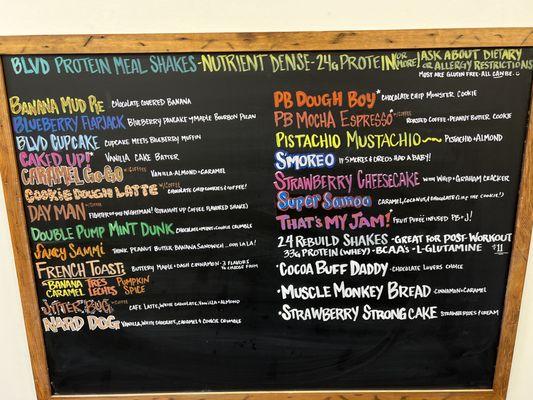 BLVD PROTEIN MEAL SHAKES - NUTRIENT DENSE - 24g PROTEIN (OR MORE!)
ASK ABOUT DIETARY
OR ALLERGY RESTRICTIONS
MOST ARE GLUTEN FREE - ALL CAN BE
BANANA MUD PIE CHOCOLATE COVERED BANANA
BLUEBERRY FLAPJACK BLUEBERRY PANCAKE + MAPLE BOURBON PECAN
BLVD CUPCAKE CUPCAKE MEETS BLUEBERRY MUFFIN
CAKED UP! VANILLA CAKE BATTER
CARAMEL GO-GO W/COFFEE VANILLA + ALMOND + CARAMEL
COOKIE DOUGH LATTE W/COFFEE CHOCOLATE CHIP COOKIES & COFFEE!
DAY MAN W/COFFEE FIGHTER OF THE NIGHTMAN! (CINNAMON UP COFFEE FLAVORED SAUCE)
DOUBLE PUMP MINT DUNK CHOCOLATE + MINT + COOKIE CRUMBLE
SAUCY SAMMI THINK PEANUT BUTTER - BANANA SANDWICH ...OOH LA LA!
FRENCH TOAST: BUTTERY MAPLE + DASH CINNAMON - 3 FLAVORS TO CHOOSE FROM
- BANANA CARAMEL TRES LECHES PUMPKIN SPICE
JITTER BUG W/COFFEE CAFE LATTE, WHITE CHOCOLATE, VANILLA + ALMOND
NARD DOG VANILLA, WHITE CHOCOLATE, CARAMEL & COOKIE CRUMBLE
PB DOUGH BOY* CHOCOLATE CHIP MONSTER COOKIE
PB MOCHA ESPRESSO* W/COFFEE ROASTED COFFEE - PEANUT BUTTER COOKIE
PISTACHIO MUSTACHIO PISTACHIO + ALMOND
S'MOREO IF S'MORES & OREOS HAD A BABY!
STRAWBERRY CHEESECAKE WITH WHIP + GRAHAM CRACKER
SUPER SAMOA CARAMEL, COCONUT, & CHOCOLATE (LIKE THE COOKIE!)
THAT'S MY JAM! FRUIT PUREE INFUSED PB + J!
24 REBUILD SHAKES - GREAT FOR POST-WORKOUT
33g PROTEIN (WHEY) - BCAA'S - L-GLUTAMINE $11
• COCOA BUFF DADDY - CHOCOLATE LOVERS CHOICE
• MUSCLE MONKEY BREAD - CINNAMON + CARAMEL
• STRAWBERRY STRONG CAKE STRAWBERRIES & CREAM